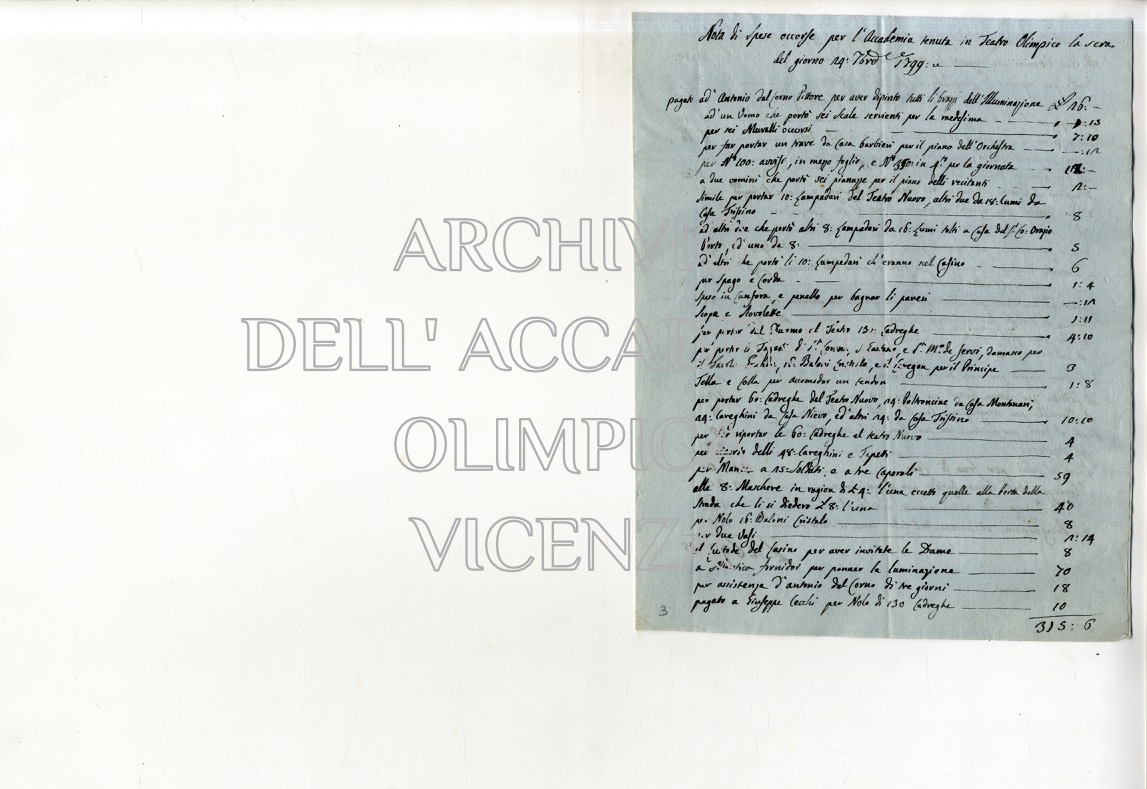 Nota di Spese occorse per l'Accademia tenuta in Teatro Olimpico la sera
del giorno 24: 1799:
pagato ad' Antonio dal Corno Pittore per aver dipinto tutti li brazzi dell'Illuminazione 26:-
ad'un Uomo che portò sei Scale servienti per la medesima :15
per sei Muralli occorsi 7:10
per far portar un trave da Casa barbieri per il piano dell'Orchestra
per N° 100: avvisi, in mezzo foglio, e N° in 4to per la giornata
a due uomini che portò sei pianazze per il piano delli recitanti
Simile per portar 10: Lampadari del Teatro Nuovo, altri due da 18: Lumi da
Casa Trissino 8
ad altri due che portò altri 8: Lampadari da 16: Lumi tolti a Casa del Orazio
Porto, ed'uno da 8: 5
ad'altri che portò li 10: Lampedari ch'eranno nel Casino 6
per Spago e Corda 1:4
speso in Canfora, e penello per bagnar li paveri
Scopa e Scovolette 1:11
per portar dal Duomo al Teatro 131 Cadreghe 4:10
per portar li Tapeti di Corona, S. Gaetano, e Sta Ma de Servi, damasco per
Baloni Cristalo, e il Caregon per il Principe 3
Tella e Colla per accomodar un tendon 1:8
per portar 60: Cadreghe del Teatro Nuovo, 24: Poltroncine da Casa Montanari,
24: Careghini da Casa Nievo, ed'altri 24: da Casa Trissino 10:10
per riportar le 60: Cadreghe al teatro Nuovo 4
per delli 48: Careghini e Tapetti 4
per a 25: Soldati e a tre Caporali 59
alle 8: Maschere in ragion di £ 4: l'una eccetto quelle alla Porta della
Strada che li si diedero £ 8: l'una 40
per Nolo 16: Baloni Cristalo 8
per due Vasi :14
al Custode del Casino per aver invitate le Dame 8
a fornidor per ponner la luminazione 70
per assistenza d'antonio dal Corno di tre giorni 18
pagato a Giuseppe Cecchi per Nolo di 130 Cadreghe 10
315:6
3
ARCHIVI
DELL'ACCA
OLIMPIC
VICENZ